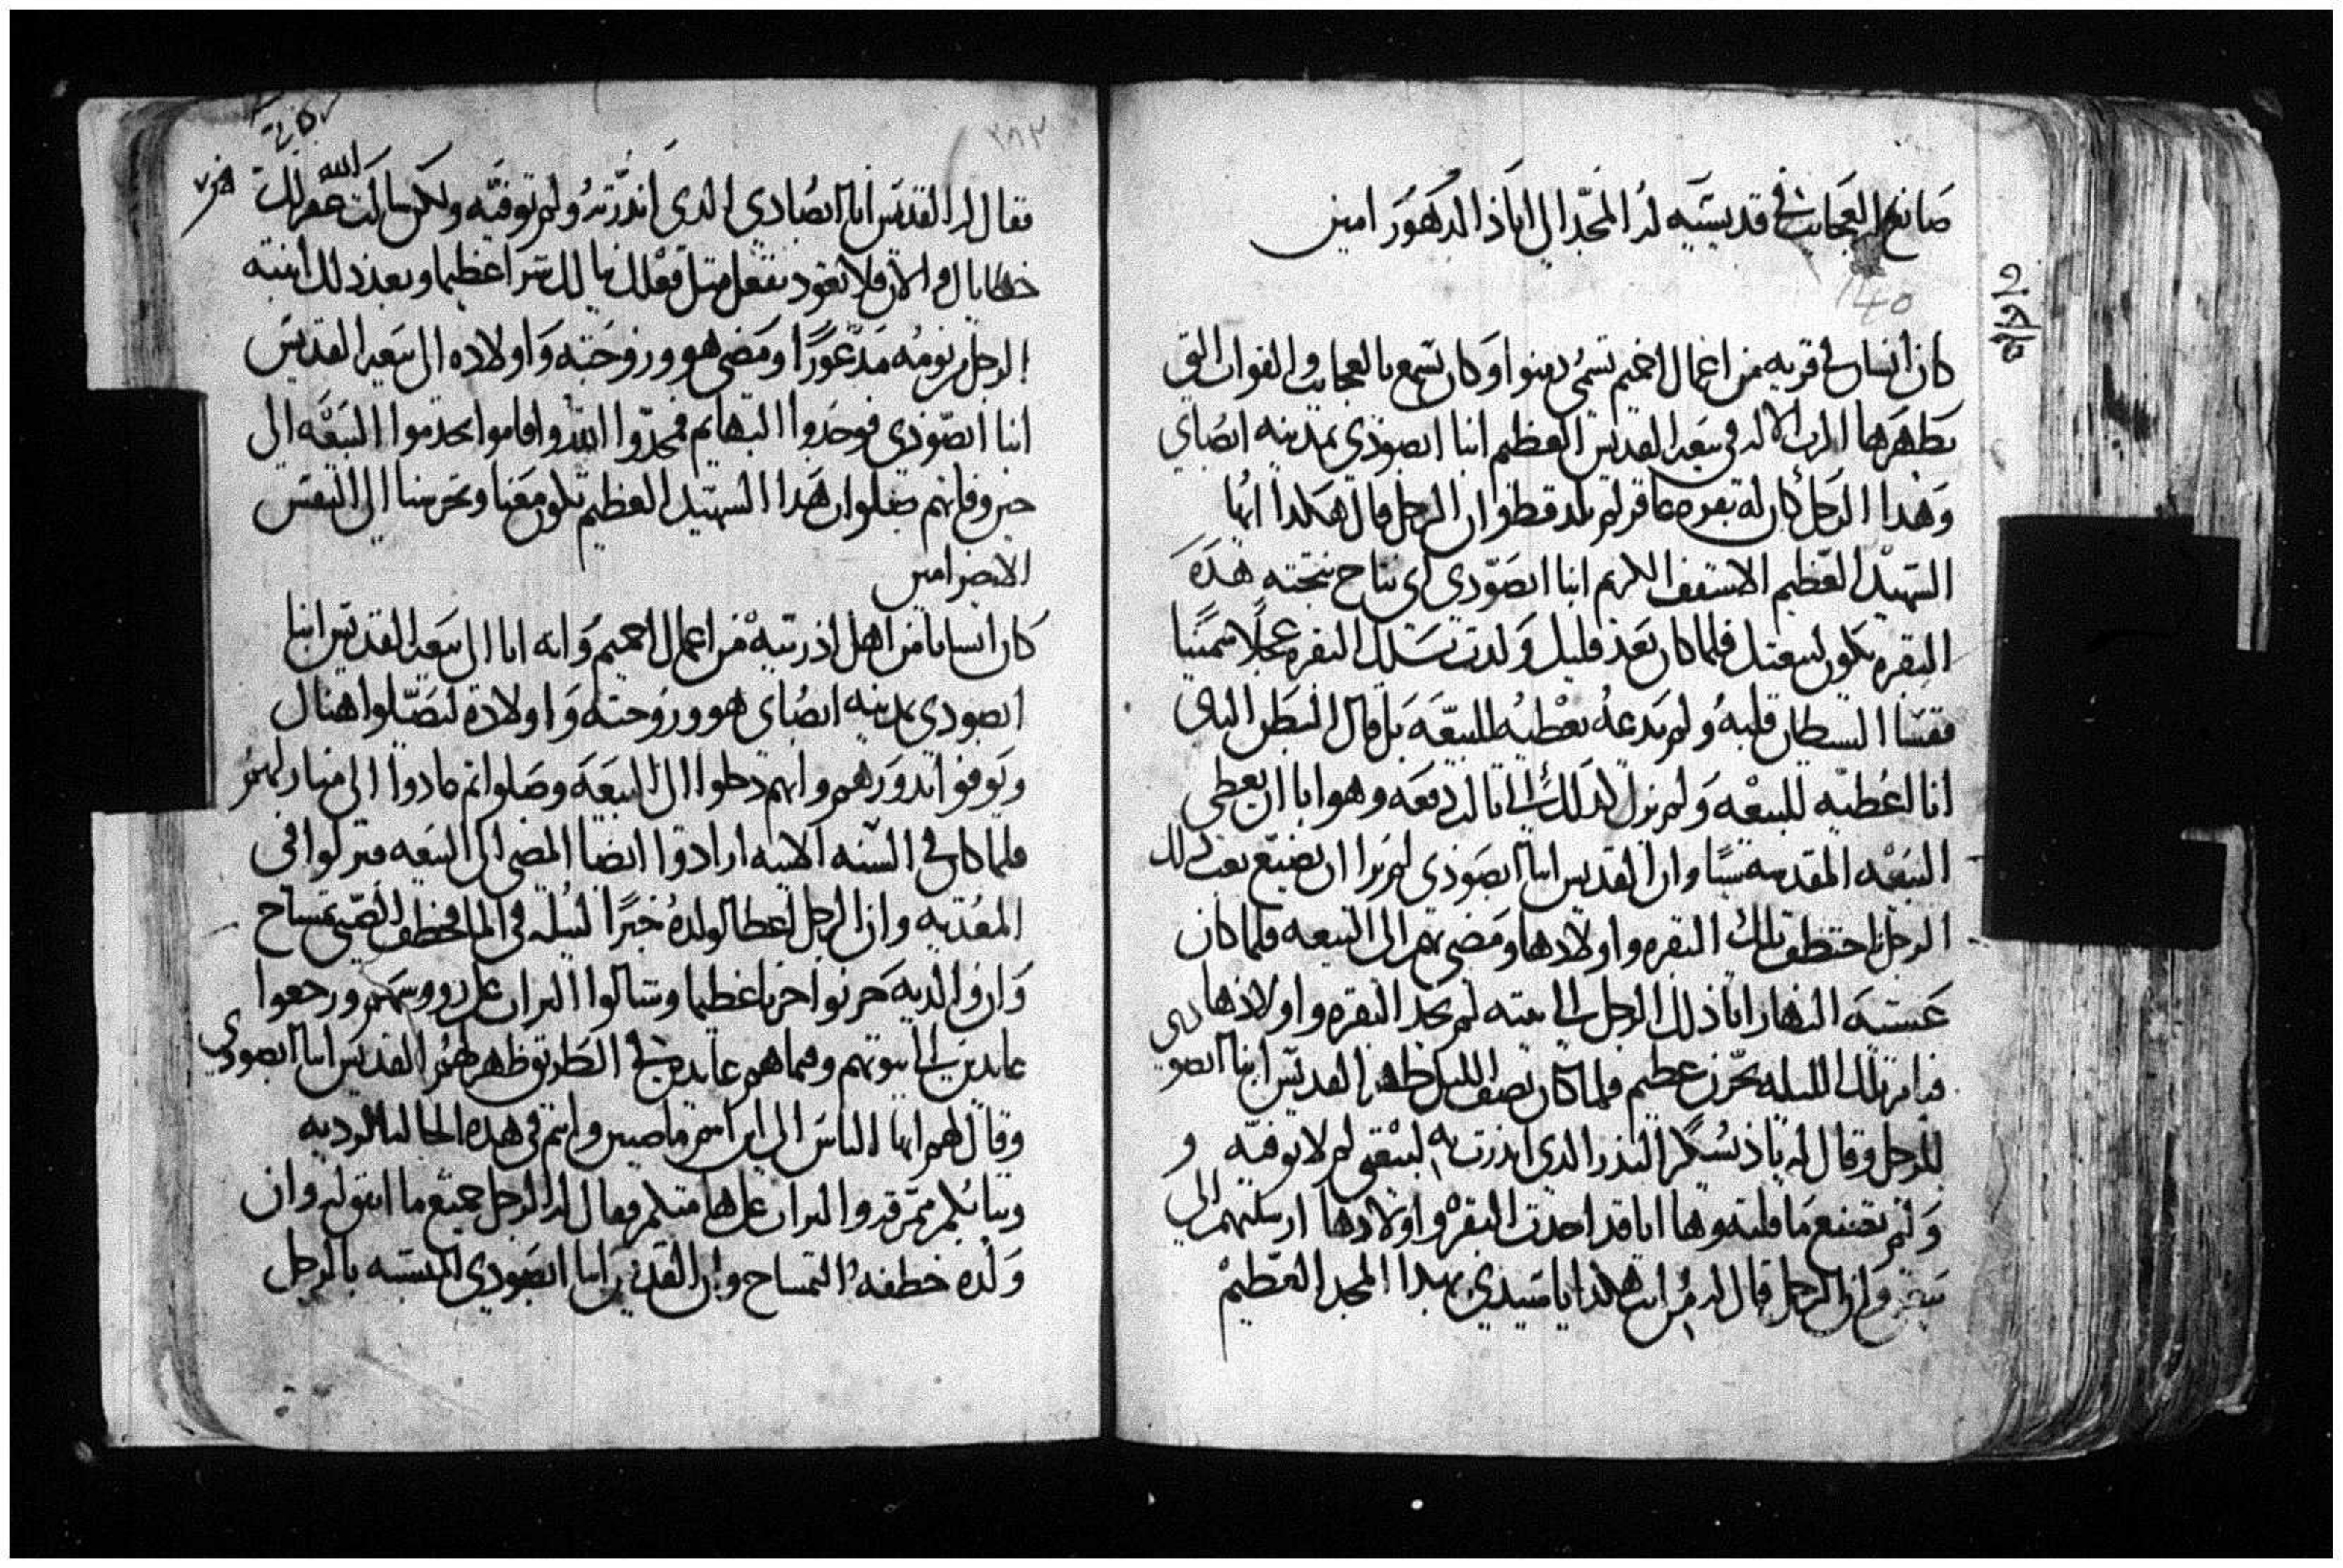 صانع العجايب في قديسيه له المجد الي اباد الدهور امين
140
كان انسان في قريه من اعمال اخميم تسمي دمنوا وكان يسمع بالعجايب والقوات التي
يظهرها الرب الاله في بيعه القديس العظيم انبا ابصودي بمدينه ابصاي
وهدا الرجل كان له بقره عاقر لم تلد قط وان الرجل قال هكدا ايها
الشهيد العظيم الاسقف الكريم انبا ابصودي اي نتاج نتجته هذه
البقره يكون لبيعتك فلما كان بعد قليل ولدت تلك البقره عجلا سمينا
فقسا الشيطان قلبه ولم يدعه يعطيه للبيعه بل قال البطن التاني
انا اعطيه للبيعه ولم يزل كدلك الي تالت دفعه وهو ابا ان يعطي
البيعه المقدسه شيا وان القديس انبا ابصودي لم يرا ان يضيع تعب دلك
الرجل اختطف تلك البقره واولادها ومضي بهم الي البيعه فلما كان
عشية النهار اتا ذلك الرجل الي بيته لم يجد البقره واولادها
فبات تلك الليله بحزن عظيم فلما كان نصف الليل ظهر القديس انبا ابصودي
للرجل وقال له النذر الدي انذرت به لبيعتي لم لا توفيه و
ولم تصنع ما قلته وها انا قد اخدت البقره واولادها ارسلتهم الي
وان الرجل قال له من انت هكدا يا سيدي بهدا المجد العظيم
فقال له القديس انا ابصادي الدي انذرته ولم توفيه ولكن سالت الله غفر لك
خطاياك والان فلا تعود تفعل مثل فعلك شرا عظيما وبعد ذلك انتبه
الرجل من نومه مذعورا ومضي هو وزوجته واولاده الي بيعه القديس
انبا ابصودي فوجدوا البهايم فمجدوا الله واقاموا يخدموا البيعه الي
حين وفاتهم صلوات هدا الشهيد العظيم تكون معنا وتحرسنا الي النفس
الاخير امين
كان انسانا من اهل اذرنيه من اعمال اخميم وانه اتا الي بيعه القديس انبا
ابصودي بمدينه ابصاي هو وزوجته واولاده ليصلوا هناك
ويوفوا ندورهم وانهم دخلوا الي البيعه وصلوا تم عادوا الي منازلهم
فلما كان في السنه الاتيه ارادوا ايضا المضي الي البيعه فنزلوا في
المعديه وان الرجل اعطا لولده خبزا ليبله في الما فخطف الصبي تمساح
وان والديه حزنوا حزنا عظيما وشالوا التراب علي رووسهم ورجعوا
عايدين الي بيوتهم وفيما هم عايدين في الطريق ظهر لهم القديس انبا ابصودي
وقال لهم ايها الناس الي اين انتم ماضيين وانتم في هذه الحاله الرديه
وتيابكم متمزقه والتراب علي هامتكم فقال له الرجل جميع ما اتفق له وان
ولده خطفه التمساح وان القديس انبا ابصودي بالرجل